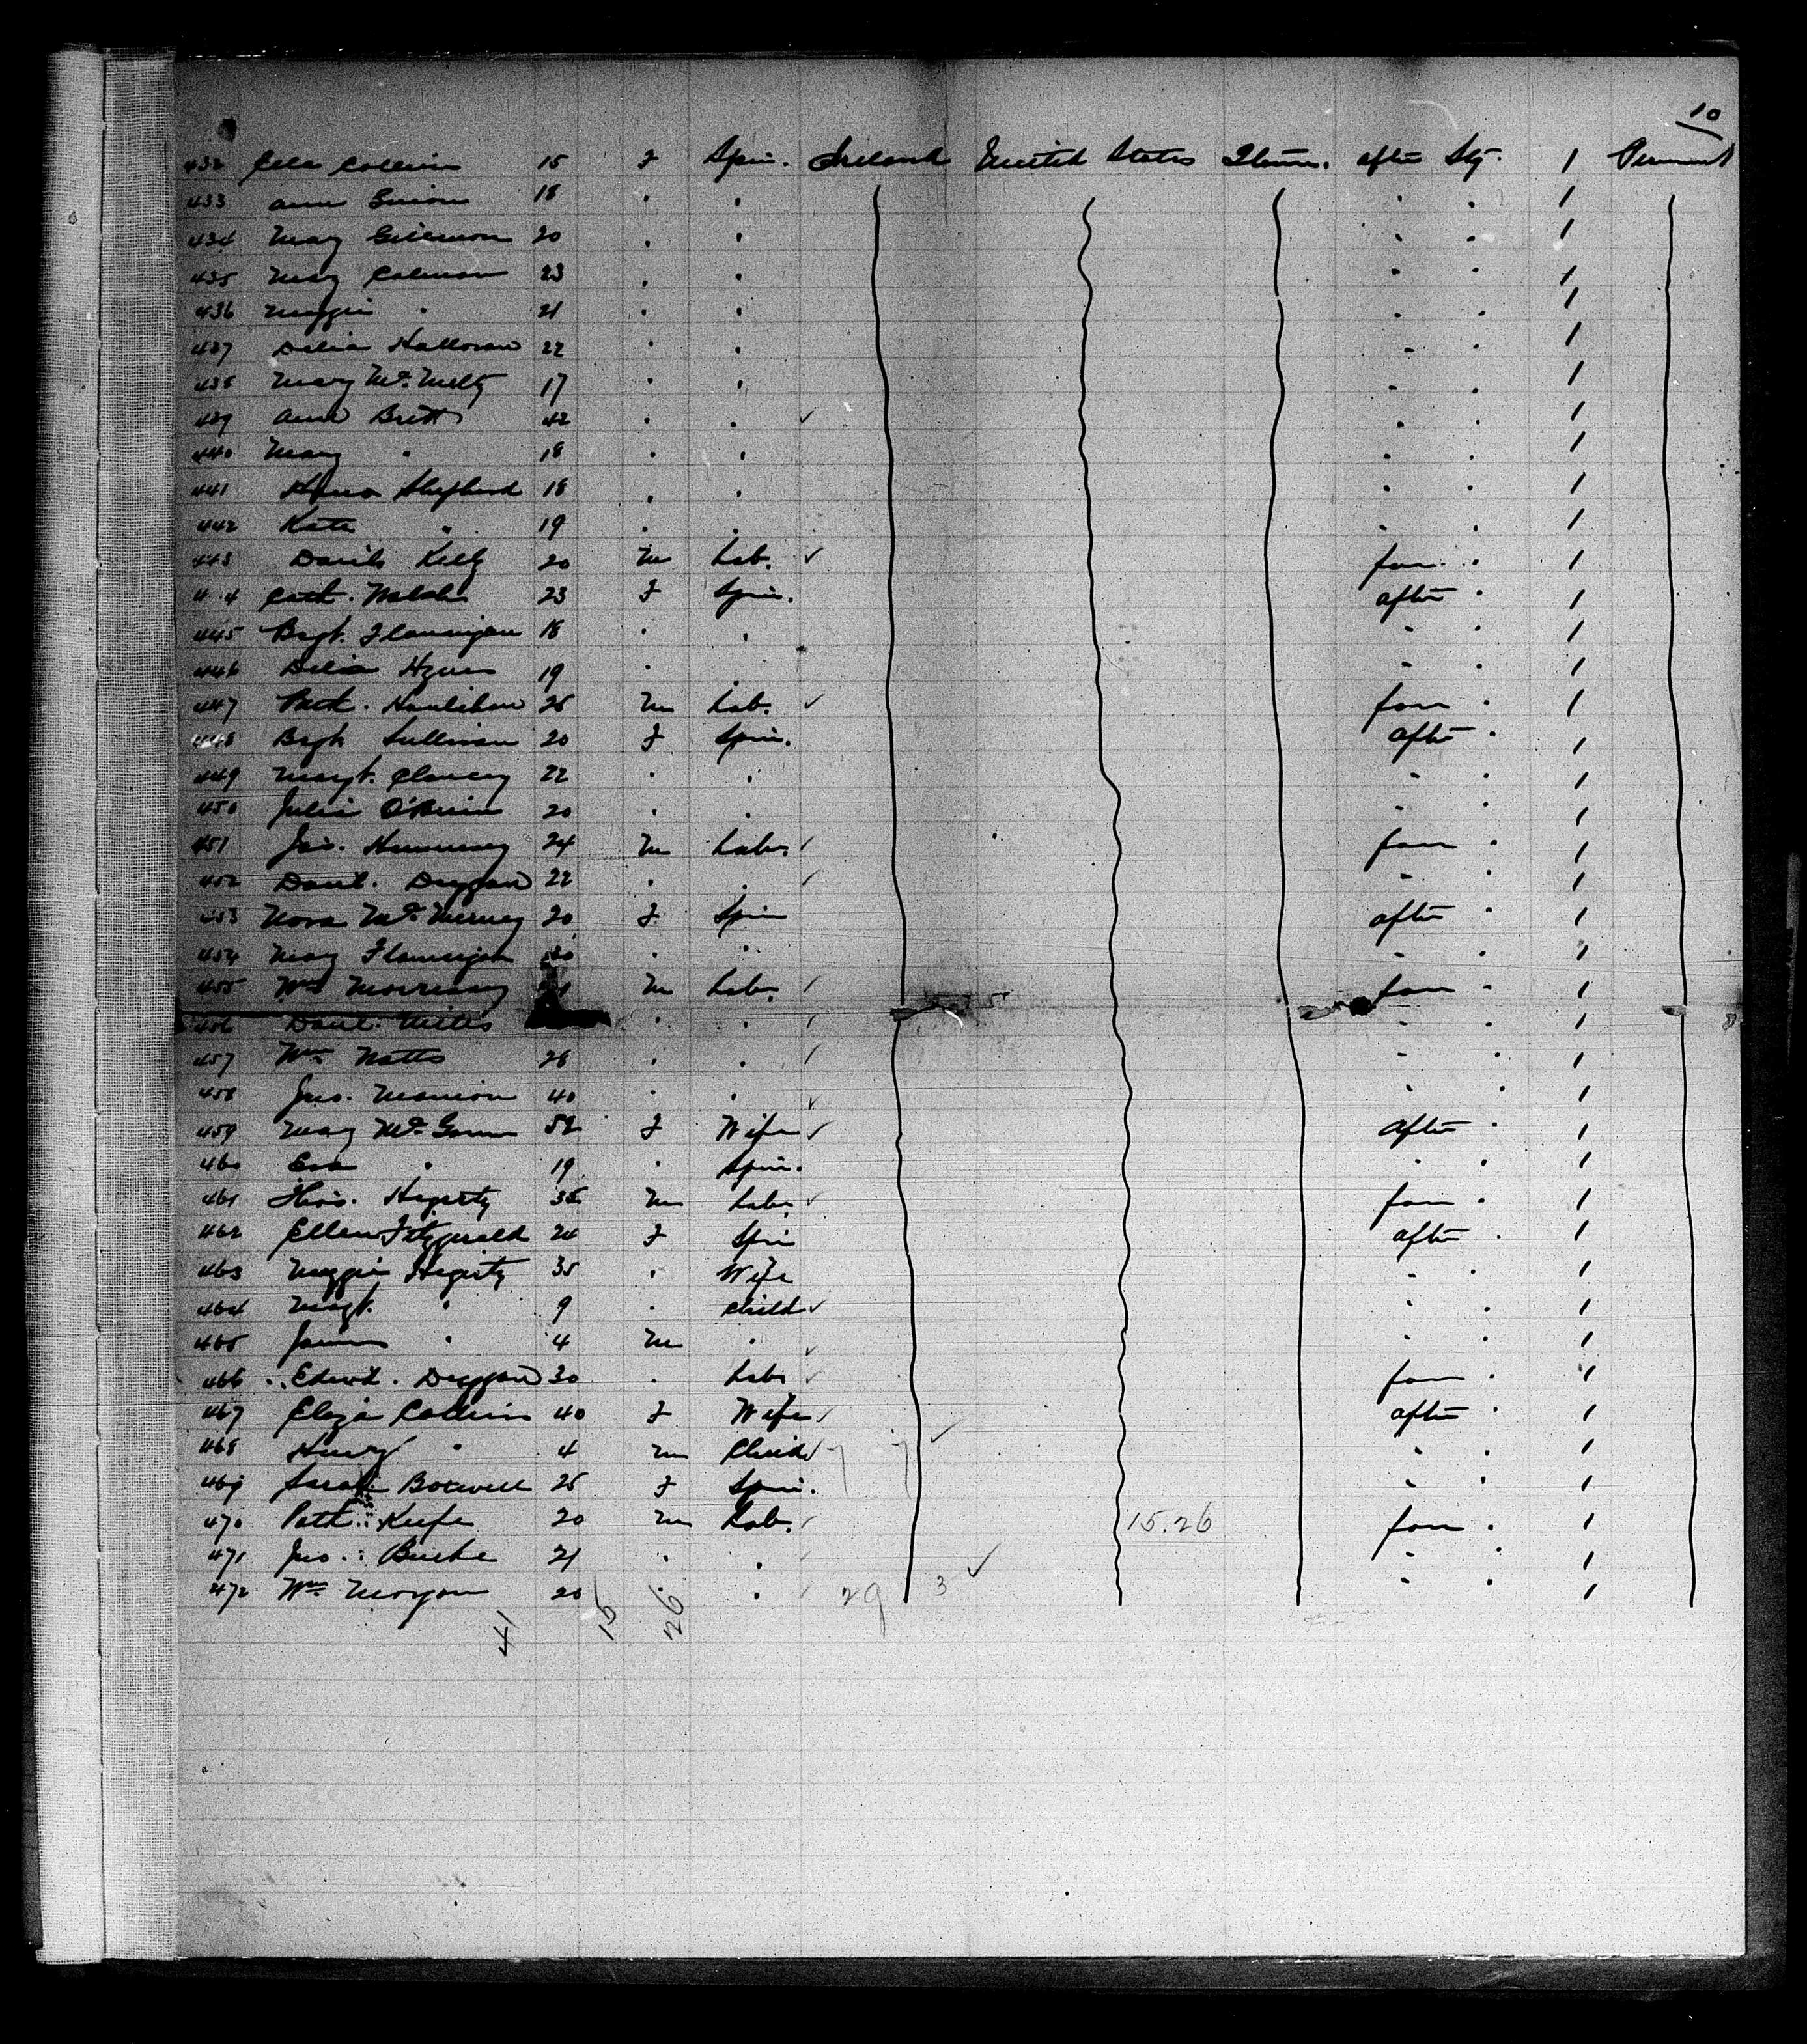 10
432 Celia Collins 15 F Spin. Ireland United States 2 after Stg. 1 Permnt
433 Ann 18 " " " " 1
434 Mary 20 " " " " 1
435 Mary Colman 23 " " " " 1
436 Maggie " 21 " " " " 1
437 Delia Halloran 22 " " " " 1
438 Mary Mc 17 " " " " 1
439 Ann Brett 42 " " ✓ " " 1
440 Mary " 18 " " " " 1
441 Shepherd 18 " " " " 1
442 Kate " 19 " " " " 1
443 Kelly 20 M Lab. ✓ for. " 1
444 Cath. Walsh 23 F Spin. after " 1
445 Bgt. Flannigan 18 " " " " 1
446 Delia Hynes 19 " " " " 1
447 Patk. Houlihan 25 M Lab. ✓ for " 1
448 Bgt Sullivan 20 F Spin. after " 1
449 Margt. Clancey 22 " " " " 1
450 Julia O'Brien 20 " " " " 1
451 Jas. 24 M Labr. ✓ for " 1
452 Danl. Duggan 22 " " ✓ " " 1
453 Nora McInerney 20 F Spin after " 1
454 Mary Flannigan 20 " " " " 1
455 Wm Morrissey M Lab. ✓ for " 1
456 Danl. " " ✓ " " 1
457 Wm Watts 28 " " ✓ " " 1
458 Jno. Mannion 40 " " ✓ " " 1
459 Mary McGowan 52 F Wife ✓ after " 1
460 " 19 " Spin. " " 1
461 Thos. Hegarty 35 M Labr. ✓ for " 1
462 Ellen Fitzgerald 24 F Spin after " 1
463 Maggie Hegarty 35 " Wife " " 1
464 Magt. " 9 " Child ✓ " " 1
465 James " 4 M " ✓ " " 1
466 Edwd. Duggan 30 " Labr ✓ for " 1
467 Eliza Collins 40 F Wife ✓ after " 1
468 Henry " 4 M Child ✓ 7 7 ✓ " " 1
469 Sarah Boxwell 25 F Spin. " " 1
470 Patk. Keefe 20 M Lab. ✓ 15.26 for " 1
471 Jno. Burke 21 " " ✓ ✓ " " 1
472 Wm Morgan 20 " " ✓ 29 3 " " 1
41 15 26